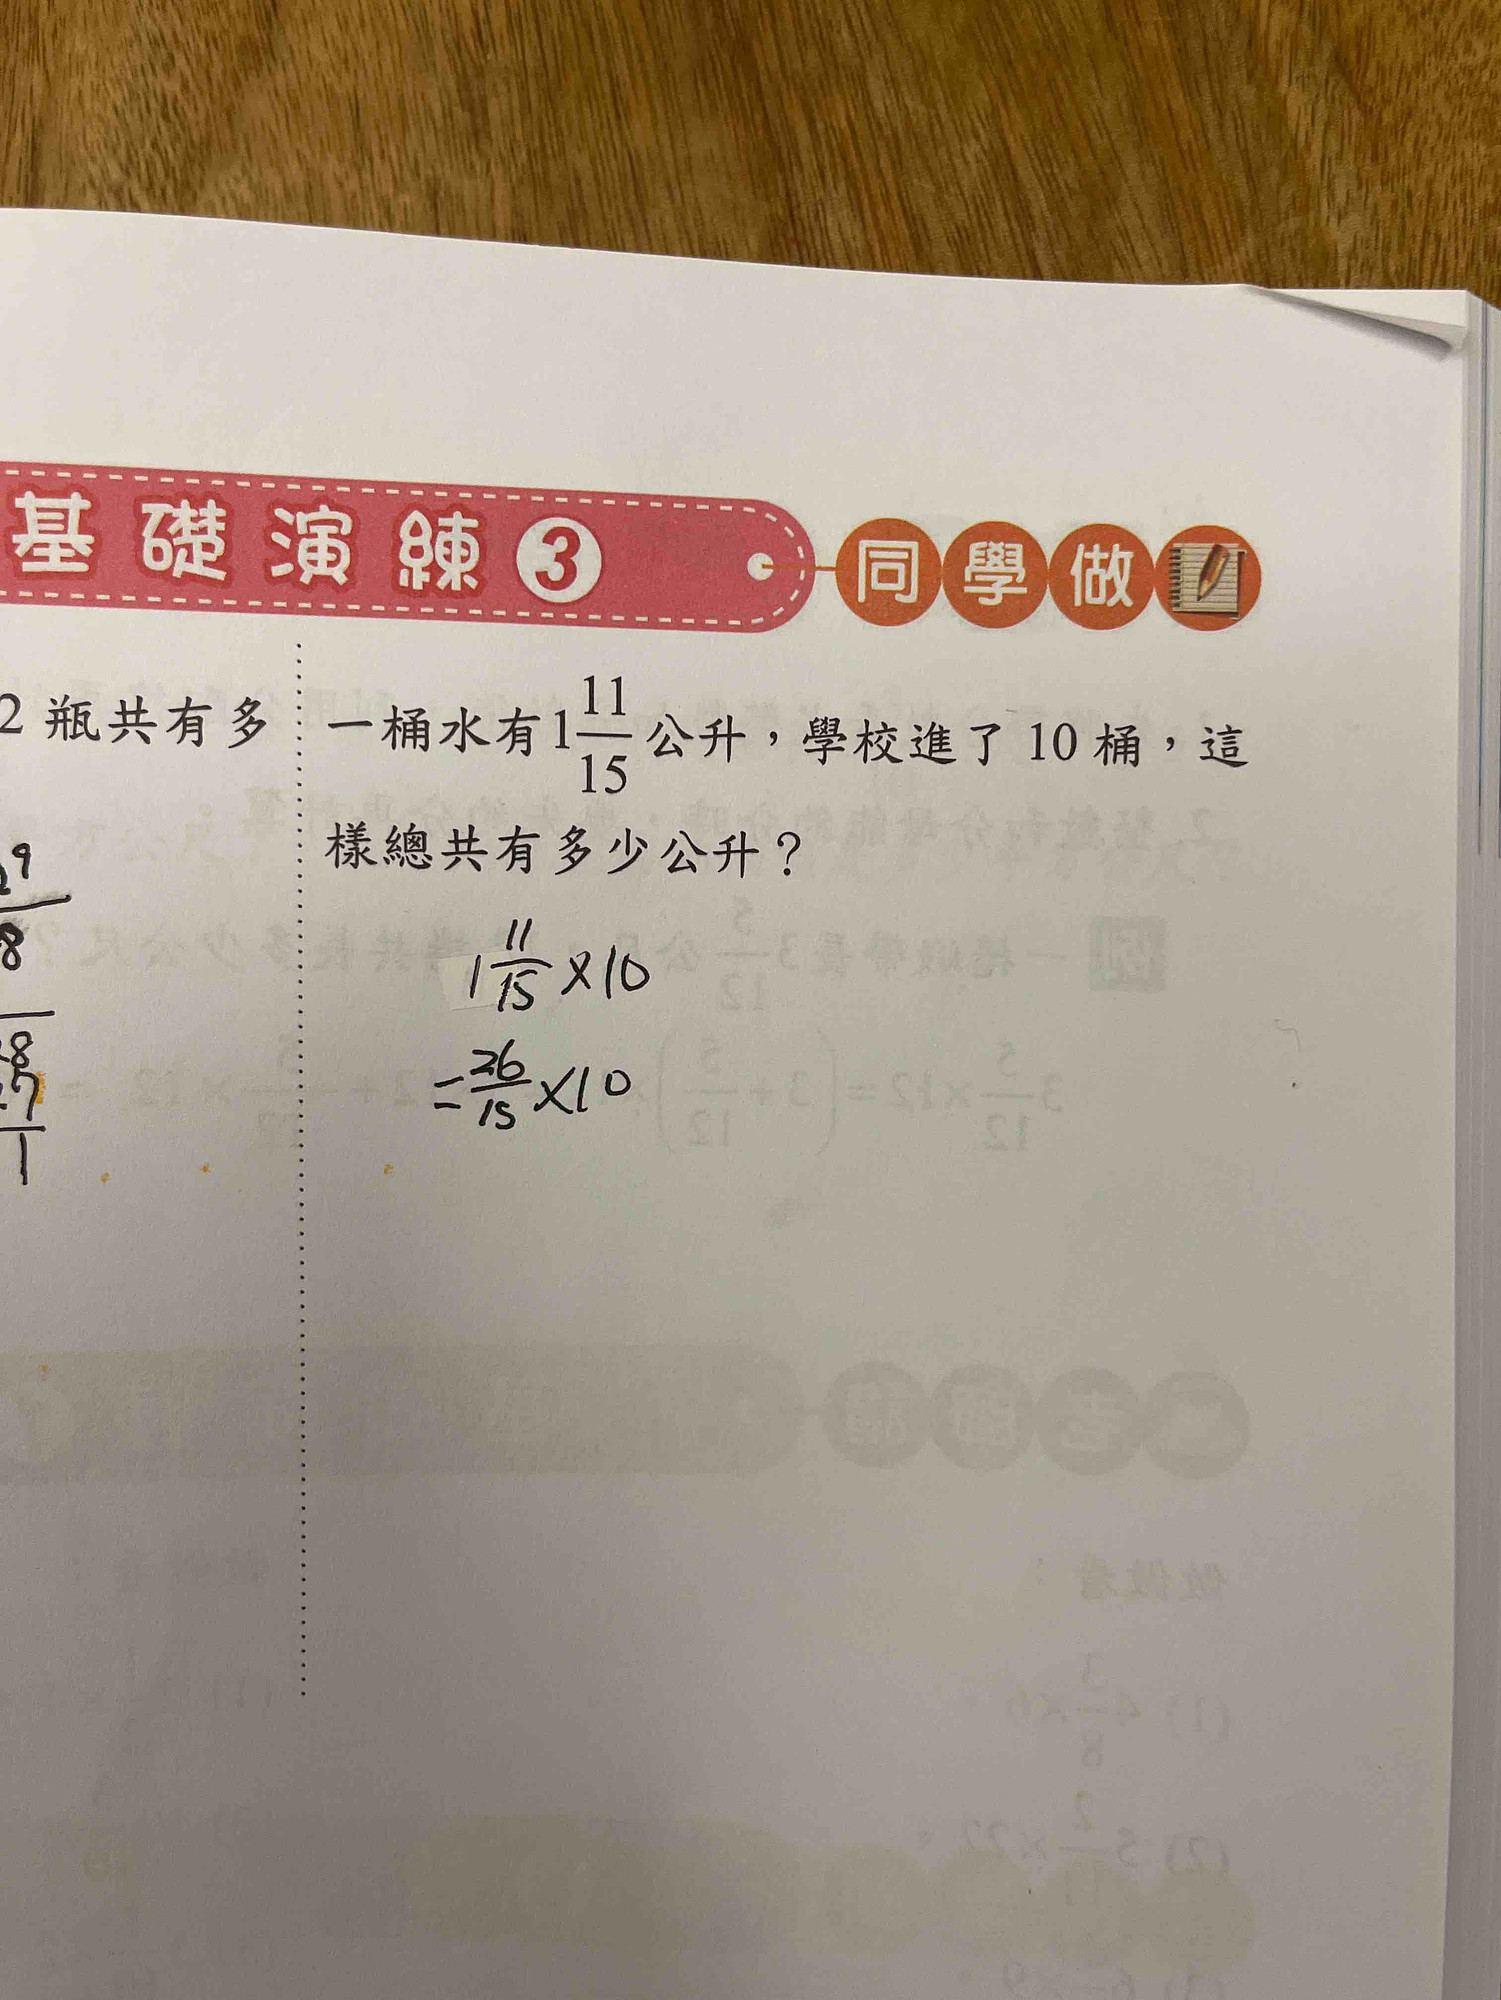 基礎演練3 同學做
2 瓶共有多
一桶水有1 11/15 公升,學校進了 10 桶,這
樣總共有多少公升?
1 11/15 ×10
= 26/15 ×10
9
8
8
7
1